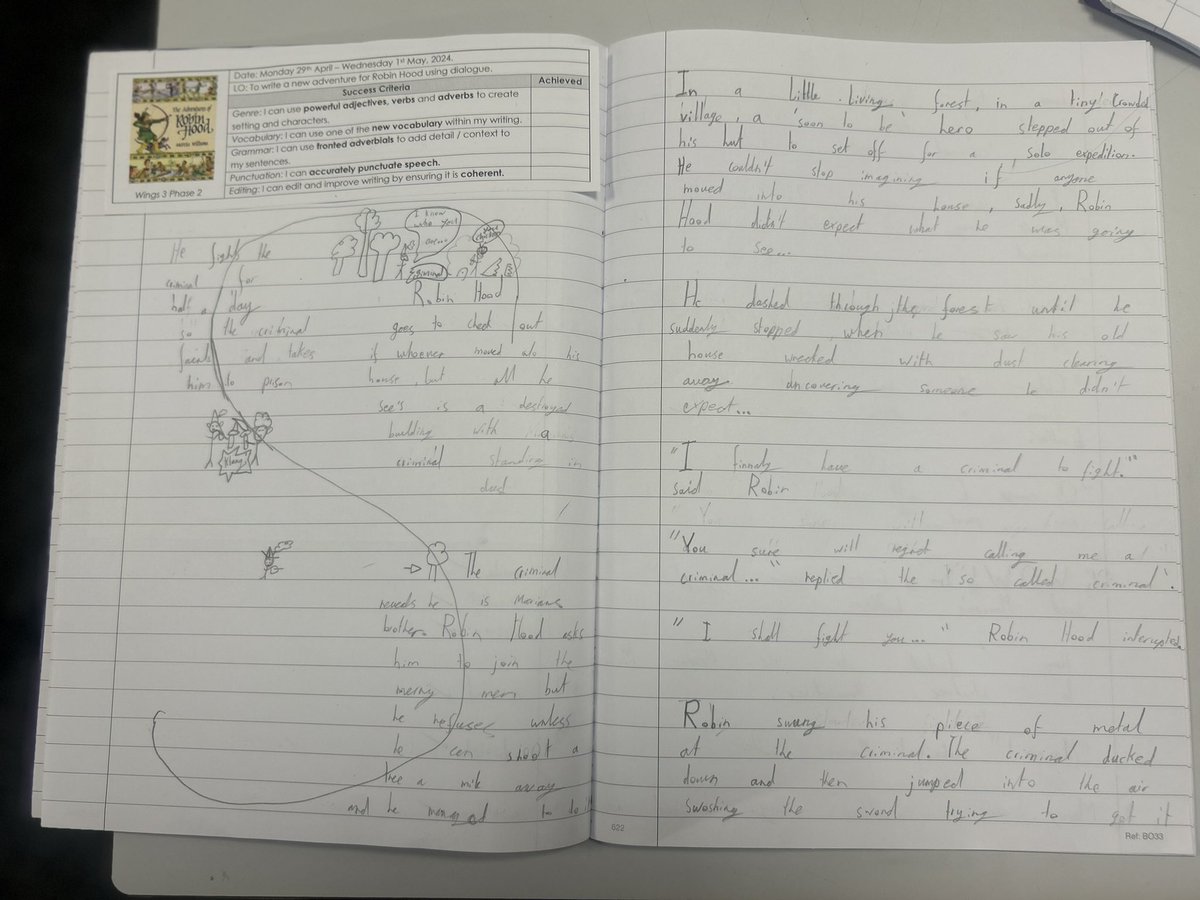 Date: Monday 29th April – Wednesday 1st May, 2024.
LO: To write a new adventure for Robin Hood using dialogue.
Success Criteria
Achieved
Genre: I can use powerful adjectives, verbs and adverbs to create
setting and characters.
Vocabulary: I can use one of the new vocabulary within my writing.
Grammar: I can use fronted adverbials to add detail / context to
my sentences.
Punctuation: I can accurately punctuate speech.
Editing: I can edit and improve writing by ensuring it is coherent.
The Adventures of
Robin
Hood
Marcia Williams
Wings 3 Phase 2
I know
who you
are...
criminal
Robin Hood
goes to check out
if whoever moved into his
house, but all he
see's is a destroyed
building with a
criminal standing in
dust
The criminal
reveals he is Marians
brother. Robin Hood asks
him to join the
merry men but
he refuses unless
he can shoot a
tree a mile away
and he managed to do it
He fights the
criminal for
half a day
so the criminal
faints and takes
him to prison
Klang
In a little living forest, in a tiny crowded
village, a 'soon to be' hero stepped out of
his hut to set off for a solo expedition.
He couldn't stop imagining if anyone
moved into his house, Sadly, Robin
Hood didn't expect what he was going
to see...
He dashed through the forest until he
suddenly stopped, when he saw his old
house wrecked with dust clearing
away uncovering someone he didn't
expect...
"I finnaly have a criminal to fight."
said Robin
"You sure will regret calling me a
criminal..." replied the 'so called criminal'.
"I shall fight you..." Robin Hood interupted.
Robin swung his piece of metal
at the criminal. The criminal ducked
down and then jumped into the air
swoshing the sword trying to get it
622
Ref: BO33